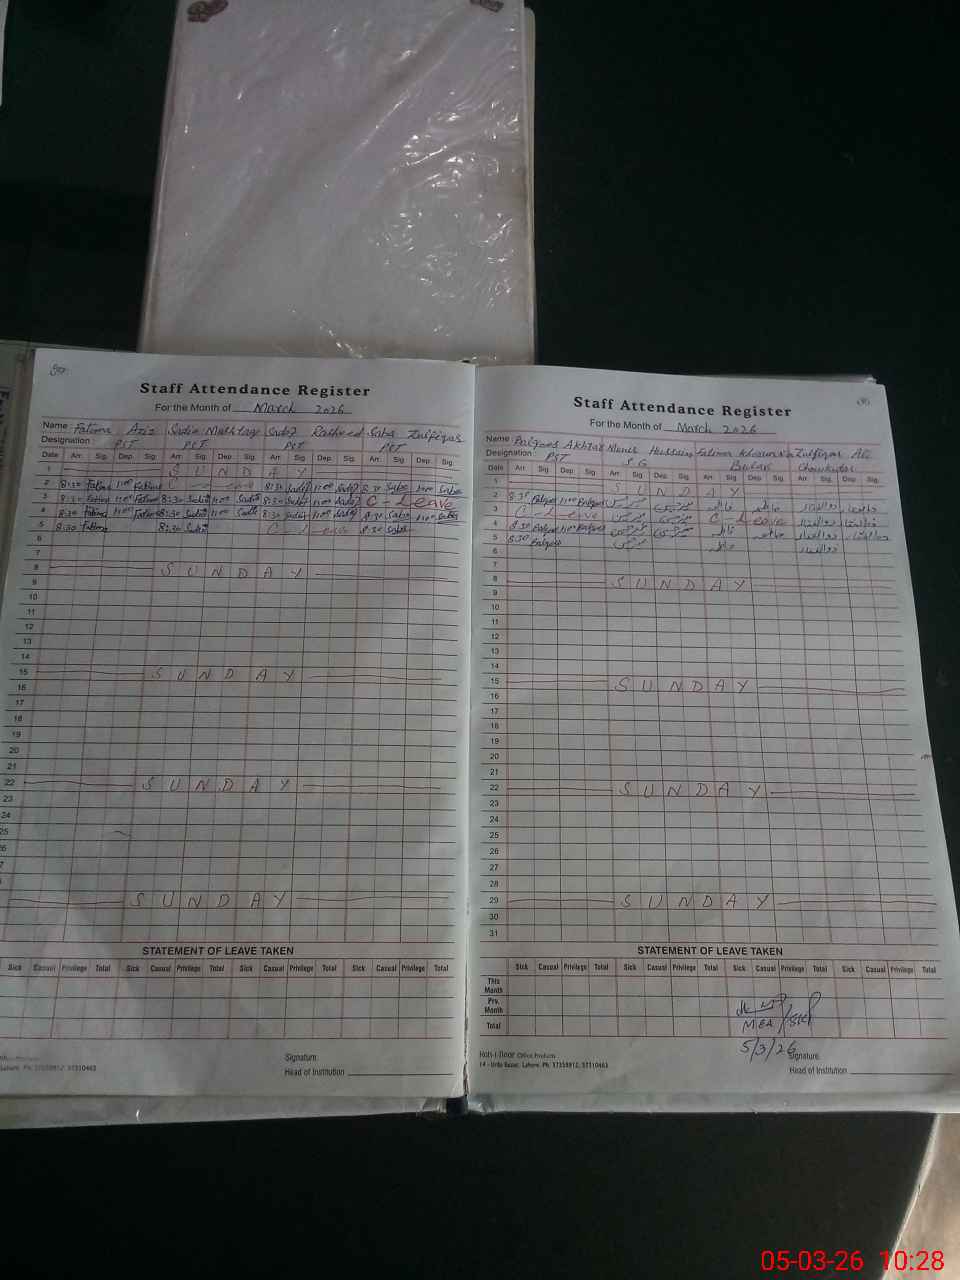 Staff Attendance Register
For the Month of March 2026
Name Fatima Aziz Sadia Mushtaq Sadaf Rasheed Saba Zulfiqar
Designation PST PET PET PET
Date Arr. Sig. Dep. Sig. Arr. Sig. Dep. Sig. Arr. Sig. Dep. Sig. Arr. Sig. Dep. Sig.
1 SUNDAY
2 8:30 Fatima 11:00 Fatima C - Leave 8:30 Sadaf 11:00 Sadaf 8:30 Saba 11:00 Saba
3 8:30 Fatima 11:00 Fatima 8:30 Sadia 11:00 Sadia 8:30 Sadaf 11:00 Sadaf C - Leave
4 8:30 Fatima 11:00 Fatima 8:30 Sadia 11:00 Sadia 8:30 Sadaf 11:00 Sadaf 8:30 Saba 11:00 Saba
5 8:30 Fatima 8:30 Sadia C - Leave 8:30 Saba
6
7
8 SUNDAY
9
10
11
12
13
14
15 SUNDAY
16
17
18
19
20
21
22 SUNDAY
23
24
25
SUNDAY
STATEMENT OF LEAVE TAKEN
Sick Casual Privilege Total Sick Casual Privilege Total Sick Casual Privilege Total Sick Casual Privilege Total
Signature
Lahore. Ph: 37358912, 37310463
Head of Institution
Staff Attendance Register
For the Month of March 2026
Name Balqees Akhtar Munir Hussain Fatima Zulfiqar Ali
Designation PST S.G Chowkidar
Date Arr. Sig. Dep. Sig. Arr. Sig. Dep. Sig. Arr. Sig. Dep. Sig. Arr. Sig. Dep. Sig.
1 SUNDAY
2 8:30 Balqees 11:00 Balqees
3 C - Leave C - Leave
4 8:30 Balqees 11:00 Balqees
5 8:30 Balqees
6
7
8 SUNDAY
9
10
11
12
13
14
15 SUNDAY
16
17
18
19
20
21
22 SUNDAY
23
24
25
26
27
28
29 SUNDAY
30
31
STATEMENT OF LEAVE TAKEN
Sick Casual Privilege Total Sick Casual Privilege Total Sick Casual Privilege Total Sick Casual Privilege Total
This Month
Prv. Month
Total
MEA/SKP
5/3/26
Koh-i-Noor Office Products
14 - Urdu Bazar, Lahore. Ph: 37358912, 37310463
Signature
Head of Institution
05-03-26 10:28